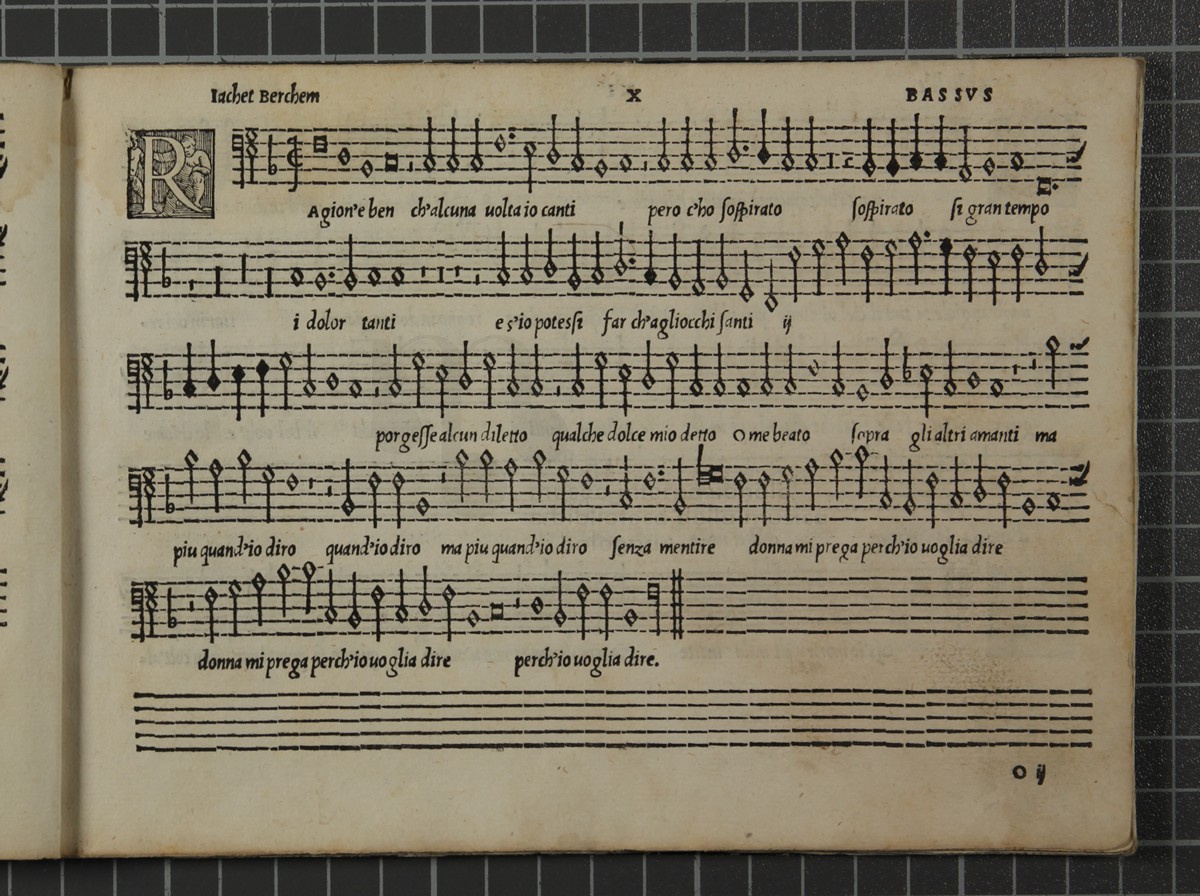 Iachet Berchem X BASSVS
RAgion'e ben ch'alcuna uolta io canti pero c'ho sospirato sospirato si gran tempo
i dolor tanti e s'io potessi far ch'agliocchi santi ij
porgesse alcun diletto qualche dolce mio detto O me beato sopra gli altri amanti ma
piu quand'io diro quand'io diro ma piu quand'io diro senza mentire donna mi prega perch'io uoglia dire
donna mi prega perch'io uoglia dire perch'io uoglia dire.
O ij